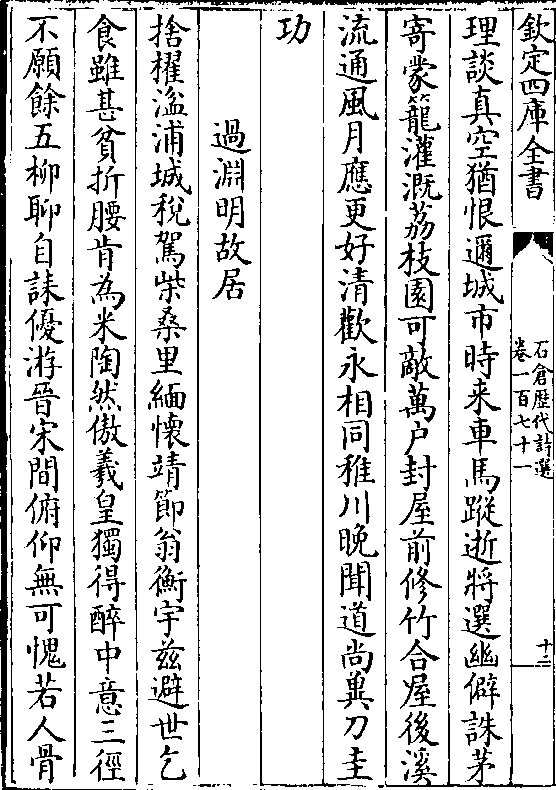 欽定四庫全書
石倉歴代詩選
卷一百七十一
十三
理談真空猶恨邇城市時来車馬蹤逝將選幽僻誅茅
寄蒙籠灌溉荔枝園可敵萬户封屋前修竹合屋後溪
流通風月應更好清歡永相同稚川晚聞道尚兾刀圭
功
過淵明故居
捨櫂湓浦城稅駕柴桑里緬懷靖節翁衡宇兹避世乞
食雖甚貧折腰肯為米陶然傲羲皇獨得醉中意三徑
不願餘五柳聊自誄優游晉宋間俯仰無可愧若人骨